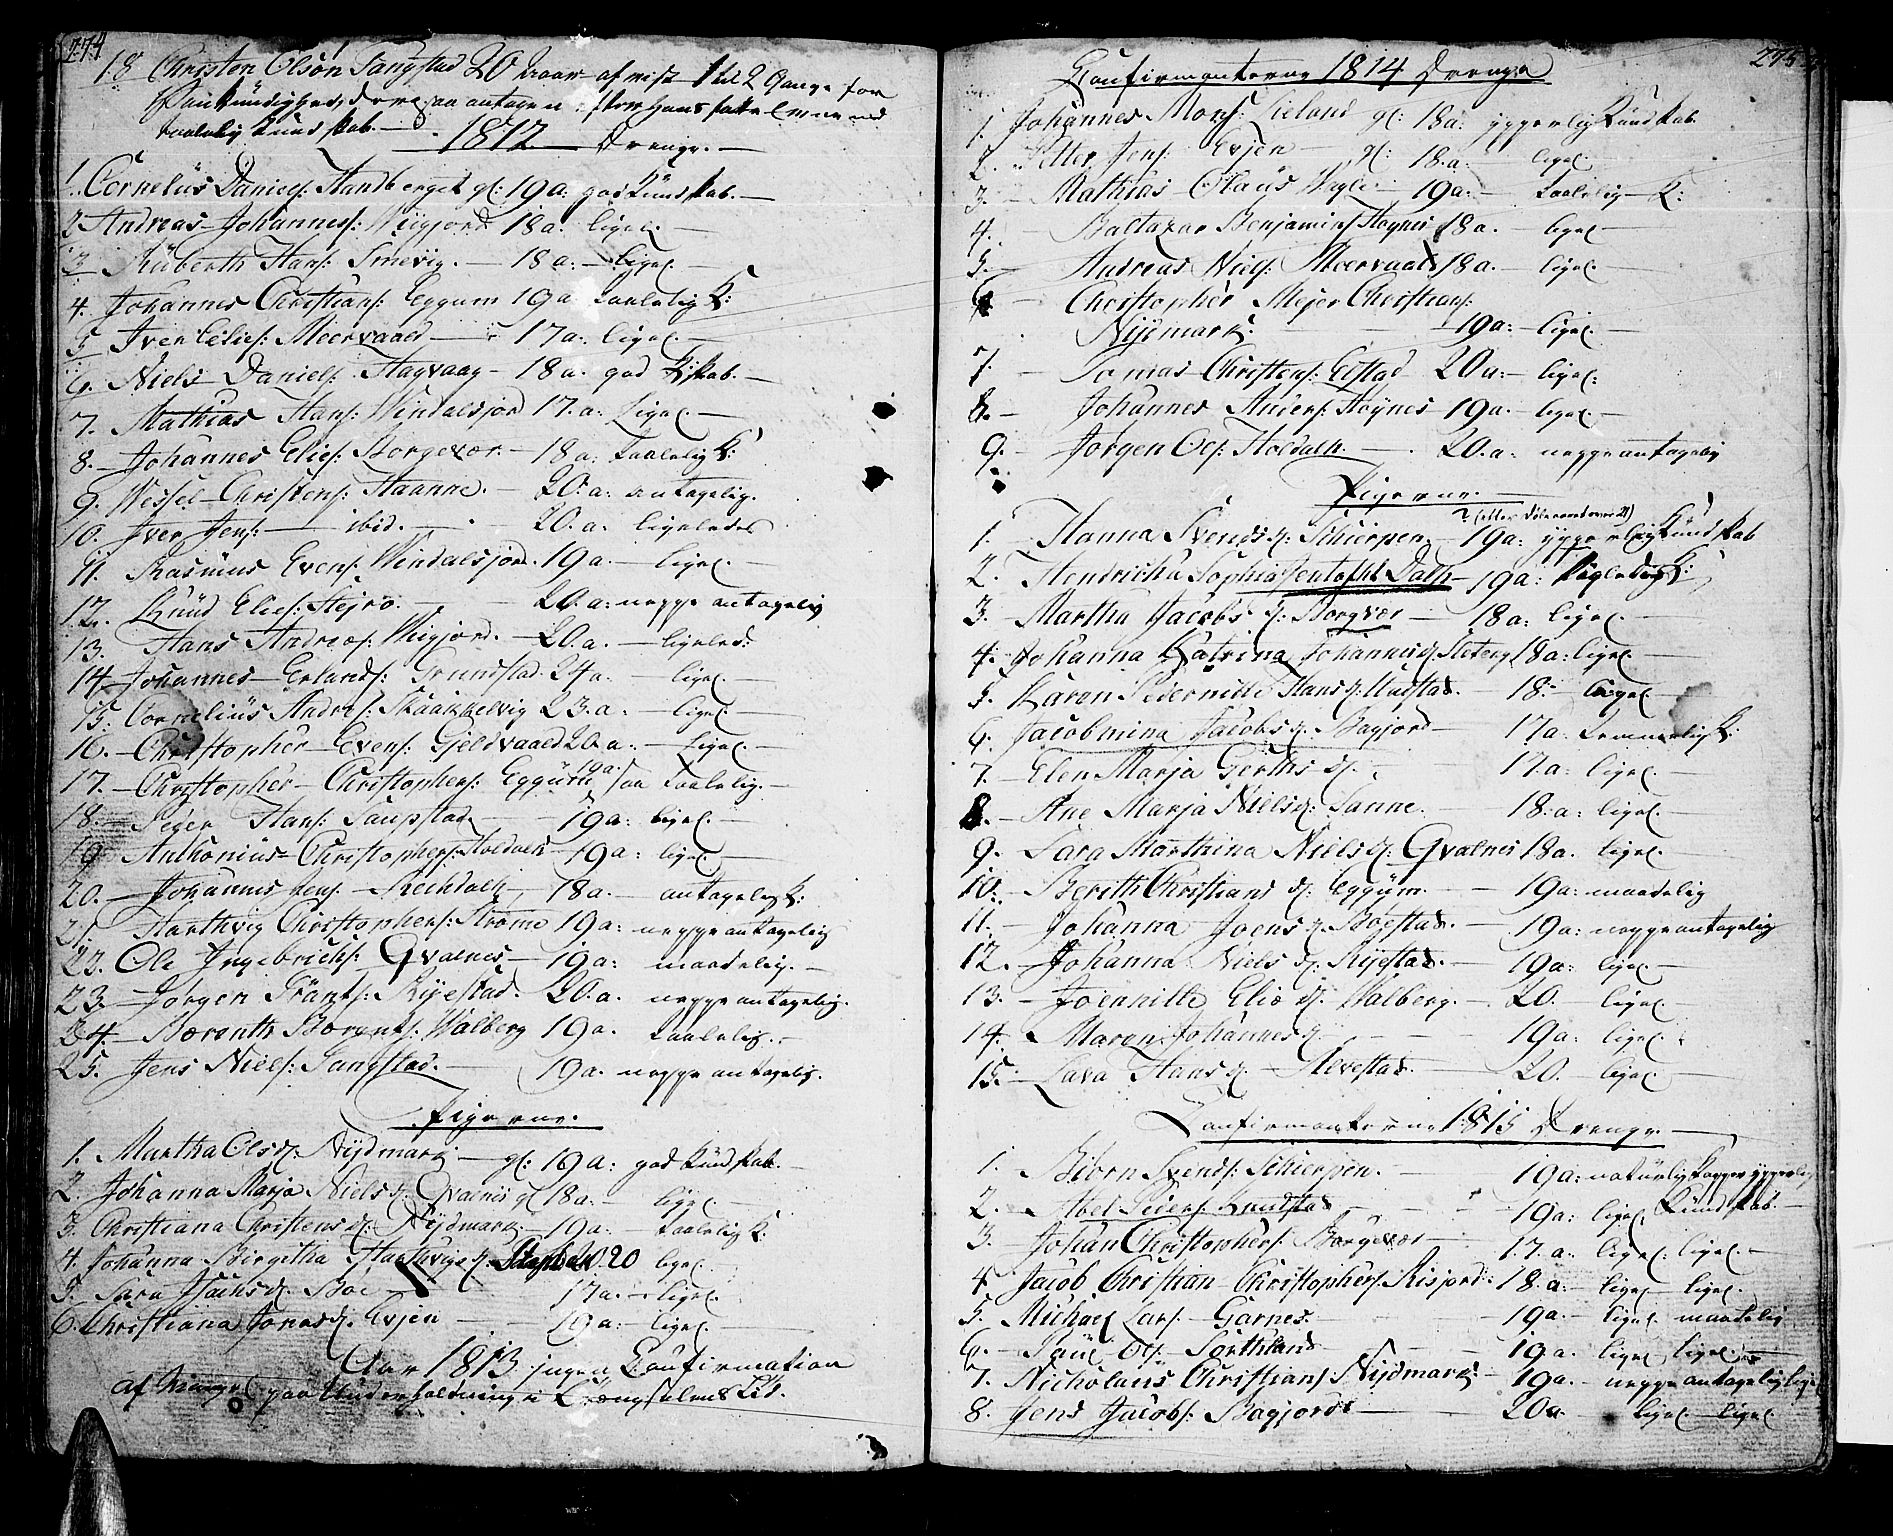 274
18 Christen Olsøn Sangstad 20 aar afvist 1 til 2 Gange for
Vankundighed,
taalelig Kundskab. —
1812 Drenge. —
1. Cornelius Daniels: Handberget gl: 19 a: god Kundskab. —
2 Andreas Johannes: Wigjord 18 a. ligel. —
3 Ruberth Hans: Smevig. — 18 a: — ligel. —
4. Johannes Christians: Eggum 19 a: taalelig K:
5 Iver Elies: Meervaald — 17 a: ligel. —
6. Niels Daniels: Hagvaag — 18 a. god Kskab. —
7. Mathias Hans: Windalsjord 17. a: Ligel. —
8. — Johannes Elies: Borgevær. — 18 a: taalelig K:
9. Wessel Christens: Haanne. — 20. a: antagelig.
10. Iver Jens: — ibid. — 20. a: ligeledes
11. Rasmus Evens: Windalsjord. 19 a. — ligel. —
12. Knud Elies: Hejrø. — 20. a: neppe antagelig
13. Hans Andreas: Wigjord. — 20. a. — ligeled:
14. Johannes Erlands: Grundstad 24 a. — ligel. —
15. Cornelius Andres: Skaakkelvig 23. a. — ligel. —
16. — Christopher Evens: Gjeldvaald 20 a: — Ligel. —
17. — Christopher Christophers: Eggum 19a. saa taalelig. —
18. — Peder Hans: Saupstad — 19 a: ligel. —
19 Anthonius Christophers: Holdalh — 19 a: — ligel. —
20. — Johannes Jens: Rechdalh, — 18 a. — antagelig K:
21. Harthvig Christophers: Strøme 19 a: neppe antagelig
22. Ole Ingebrichs: Qvalnes — 19 a: maadelig. —
23. — Jørgen Frants: Rijestad. 20. a. neppe antagelig.
24. — Bærenth Bærents: Walberg 19 a. taalelig. —
25. Jens Niels: Sangstad. — 19 a. neppe antagelig.
Pigerne.
1. Martha Olsd: Nijdmark — gl: 19 a: god Kundskab. —
2. Johanna Marja Nielsd: Qvalnes gl 18 a. — ligel. —
3. Christiana Christensd: Nijdmark. — 19 a: taalelig K:
4. Johanna Birgitha Harthvigsd. 20 ligel.
5. Sara Isaacsd. Bøe — 17 a. — ligel.
6. Christiana Jonasd. Evjen — 19 a: — ligel. —
Aar 1813 ingen Confirmation
af Mangel paa Underholdning i Trængselens Tid.
275
Confirmanterne 1814 Drenge
1. Johannes Mons: Lieland gl: 18 a: ypperlig Kundskab
2. Petter Jens: Evjen — gl: 18. a: — ligel. —
3. — Mathias Olaus — 19 a: — taalelig — K:
4. — Baltazar Benjamins: Høgnes 18 a. — ligel —
5. — Andreas Niels: Meervaald 18 a. — ligel. —
6 — Christopher Mejer Christians:
Nijdmark. — 19 a: — ligel. —
7. — Tomas Christens: Edstad 20 a: — ligel:
8. — Johannes Anders: Høynes — 19 a. — ligel. —
9. — Jørgen Ols: Holdalh. — 20. a: neppe antagelig
Pigerne. —
? (etter dåpsmanterne 21)
1. Hanna Svendsd: Schierpen, — 19 a: ypperlig Kundskab
2. Hendricha Sophia Jentofht Dalh — 19 a: ligeledes K:
3. Martha Jacobsd: Borgvær — 18 a: ligel. —
4. Johanna Katrina Johannesd: Steberg 18 a: ligel. —
5. Karen Pedernille Hansd: Uudstad. — 18: — ligel —
6. Jacobmina Jacobsd. Bagjord — 17 a. temmelig K:
7. — Elen Marja Gerthsd. — 17. a: ligel. —
8. — Ane Marja Nielsd: Sanne. — 18. a: ligel. —
9. — Sara Marthina Nielsd: Qvalnes 18 a. ligel. —
10. — Berith Christiansd: Eggum. — 19 a: maadelig
11. — Johanna Joensd. Bøestad. — 19 a: neppe antagelig
12. — Johanna Nielsd: Rijestad. — 19 a: ligel. —
13. — Joennille Eliad: Walberg. — 20. — ligel. —
14. — Maren Johannesd. — 19 a: ligel.
15. — Lava Hansd. — Alvestad. — 20. ligel. —
Confirmanterne 1815 Drenge. —
1. Biørn Svends: Schierpen. — 19 a: naturlig Kapper ypperlig
2. Abel Peders: Knutstad — 19 a: ligel. Kundskab. —
3. Johan Christophers: Borgevær — 17. a: ligel. ligel. —
4 Jacob Christian Christophers: Risjord: 18. a: — ligel — ligel. —
5. Michael Lars: Garnes. — 19 a. — ligel. maadelig
6. — Paul Ols: Sørthland — 19 a. ligel. ligel. —
7. — Nicholaus Christians: Nijdmark: — 19 a. neppe antagelig lige
8. Jens Jacobs: Bagjord — 20 a. — ligel. — ligel.